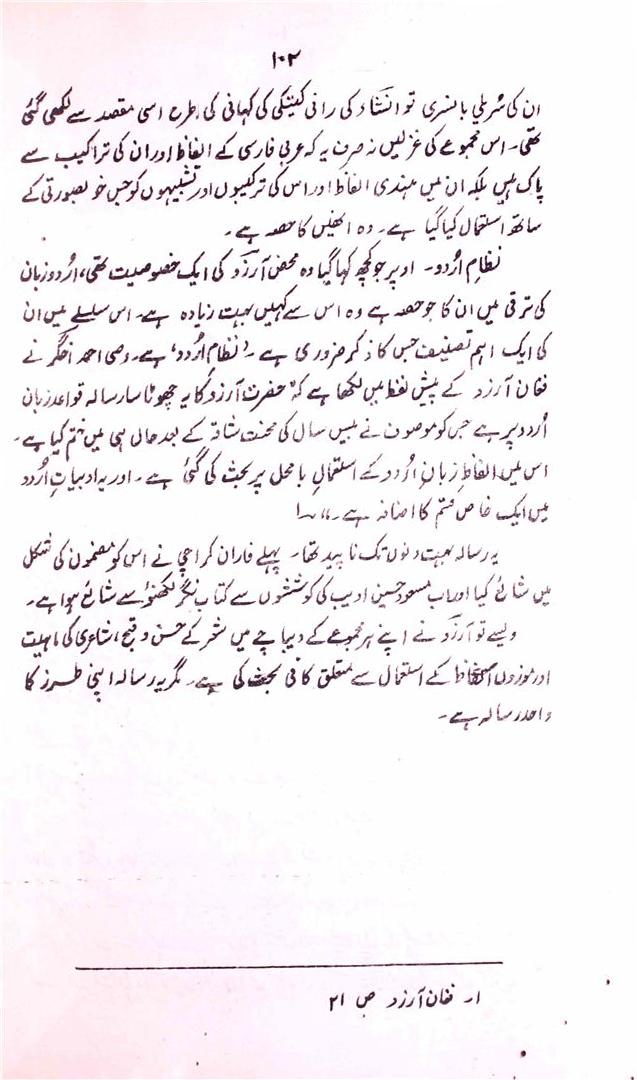 ۱۰۲
ان کی سُریلی بانسری تو انشاء کی رانی کیتکی کی کہانی کی طرح اسی مقصد سے لکھی گئی
تھی۔ اس مجموعے کی غزلیں نہ صرف یہ کہ عربی فارسی کے الفاظ اور ان کی تراکیب سے
پاک ہیں بلکہ ان میں ہندی الفاظ اور اس کی ترکیبوں اور تشبیہوں کو جس خوبصورتی کے
ساتھ استعمال کیا گیا ہے۔ وہ انھیں کا حصہ ہے۔
نظامِ اُردو۔ اوپر جو کچھ کہا گیا وہ محض آرزو کی ایک خصوصیت تھی، اُردو زبان
کی ترقی میں ان کا جو حصہ ہے وہ اس سے کہیں بہت زیادہ ہے۔ اس سلسلے میں ان
کی ایک اہم تصنیف جس کا ذکر ضروری ہے۔ 'نظامِ اُردو' ہے۔ وصی احمد اخگر نے
فغان آرزو کے پیش لفظ میں لکھا ہے کہ "حضرت آرزو کا یہ چھوٹا سا رسالہ قواعد زبان
اُردو پر ہے جس کو موصوف نے بیس سال کی محنت شاقہ کے بعد حال ہی میں ختم کیا ہے۔
اس میں الفاظِ زبانِ اُردو کے استعمالِ بامحل پر بحث کی گئی ہے۔ اور یہ ادبیاتِ اُردو
میں ایک خاص قسم کا اضافہ ہے۔" ۱
یہ رسالہ بہت دنوں تک ناپید تھا۔ پہلے فاران کراچی نے اس کو مضمون کی شکل
میں شائع کیا اور اب مسعود حسین ادیب کی کوششوں سے کتاب نگر لکھنؤ سے شائع ہوا ہے۔
ویسے تو آرزو نے اپنے ہر مجموعے کے دیباچے میں شعر کے حسن و قبح، شاعری کی ماہیت
اور موزوں الفاظ کے استعمال سے متعلق کافی بحث کی ہے۔ مگر یہ رسالہ اپنی طرز کا
واحد رسالہ ہے۔
۱۔ فغان آرزو ص ۲۱